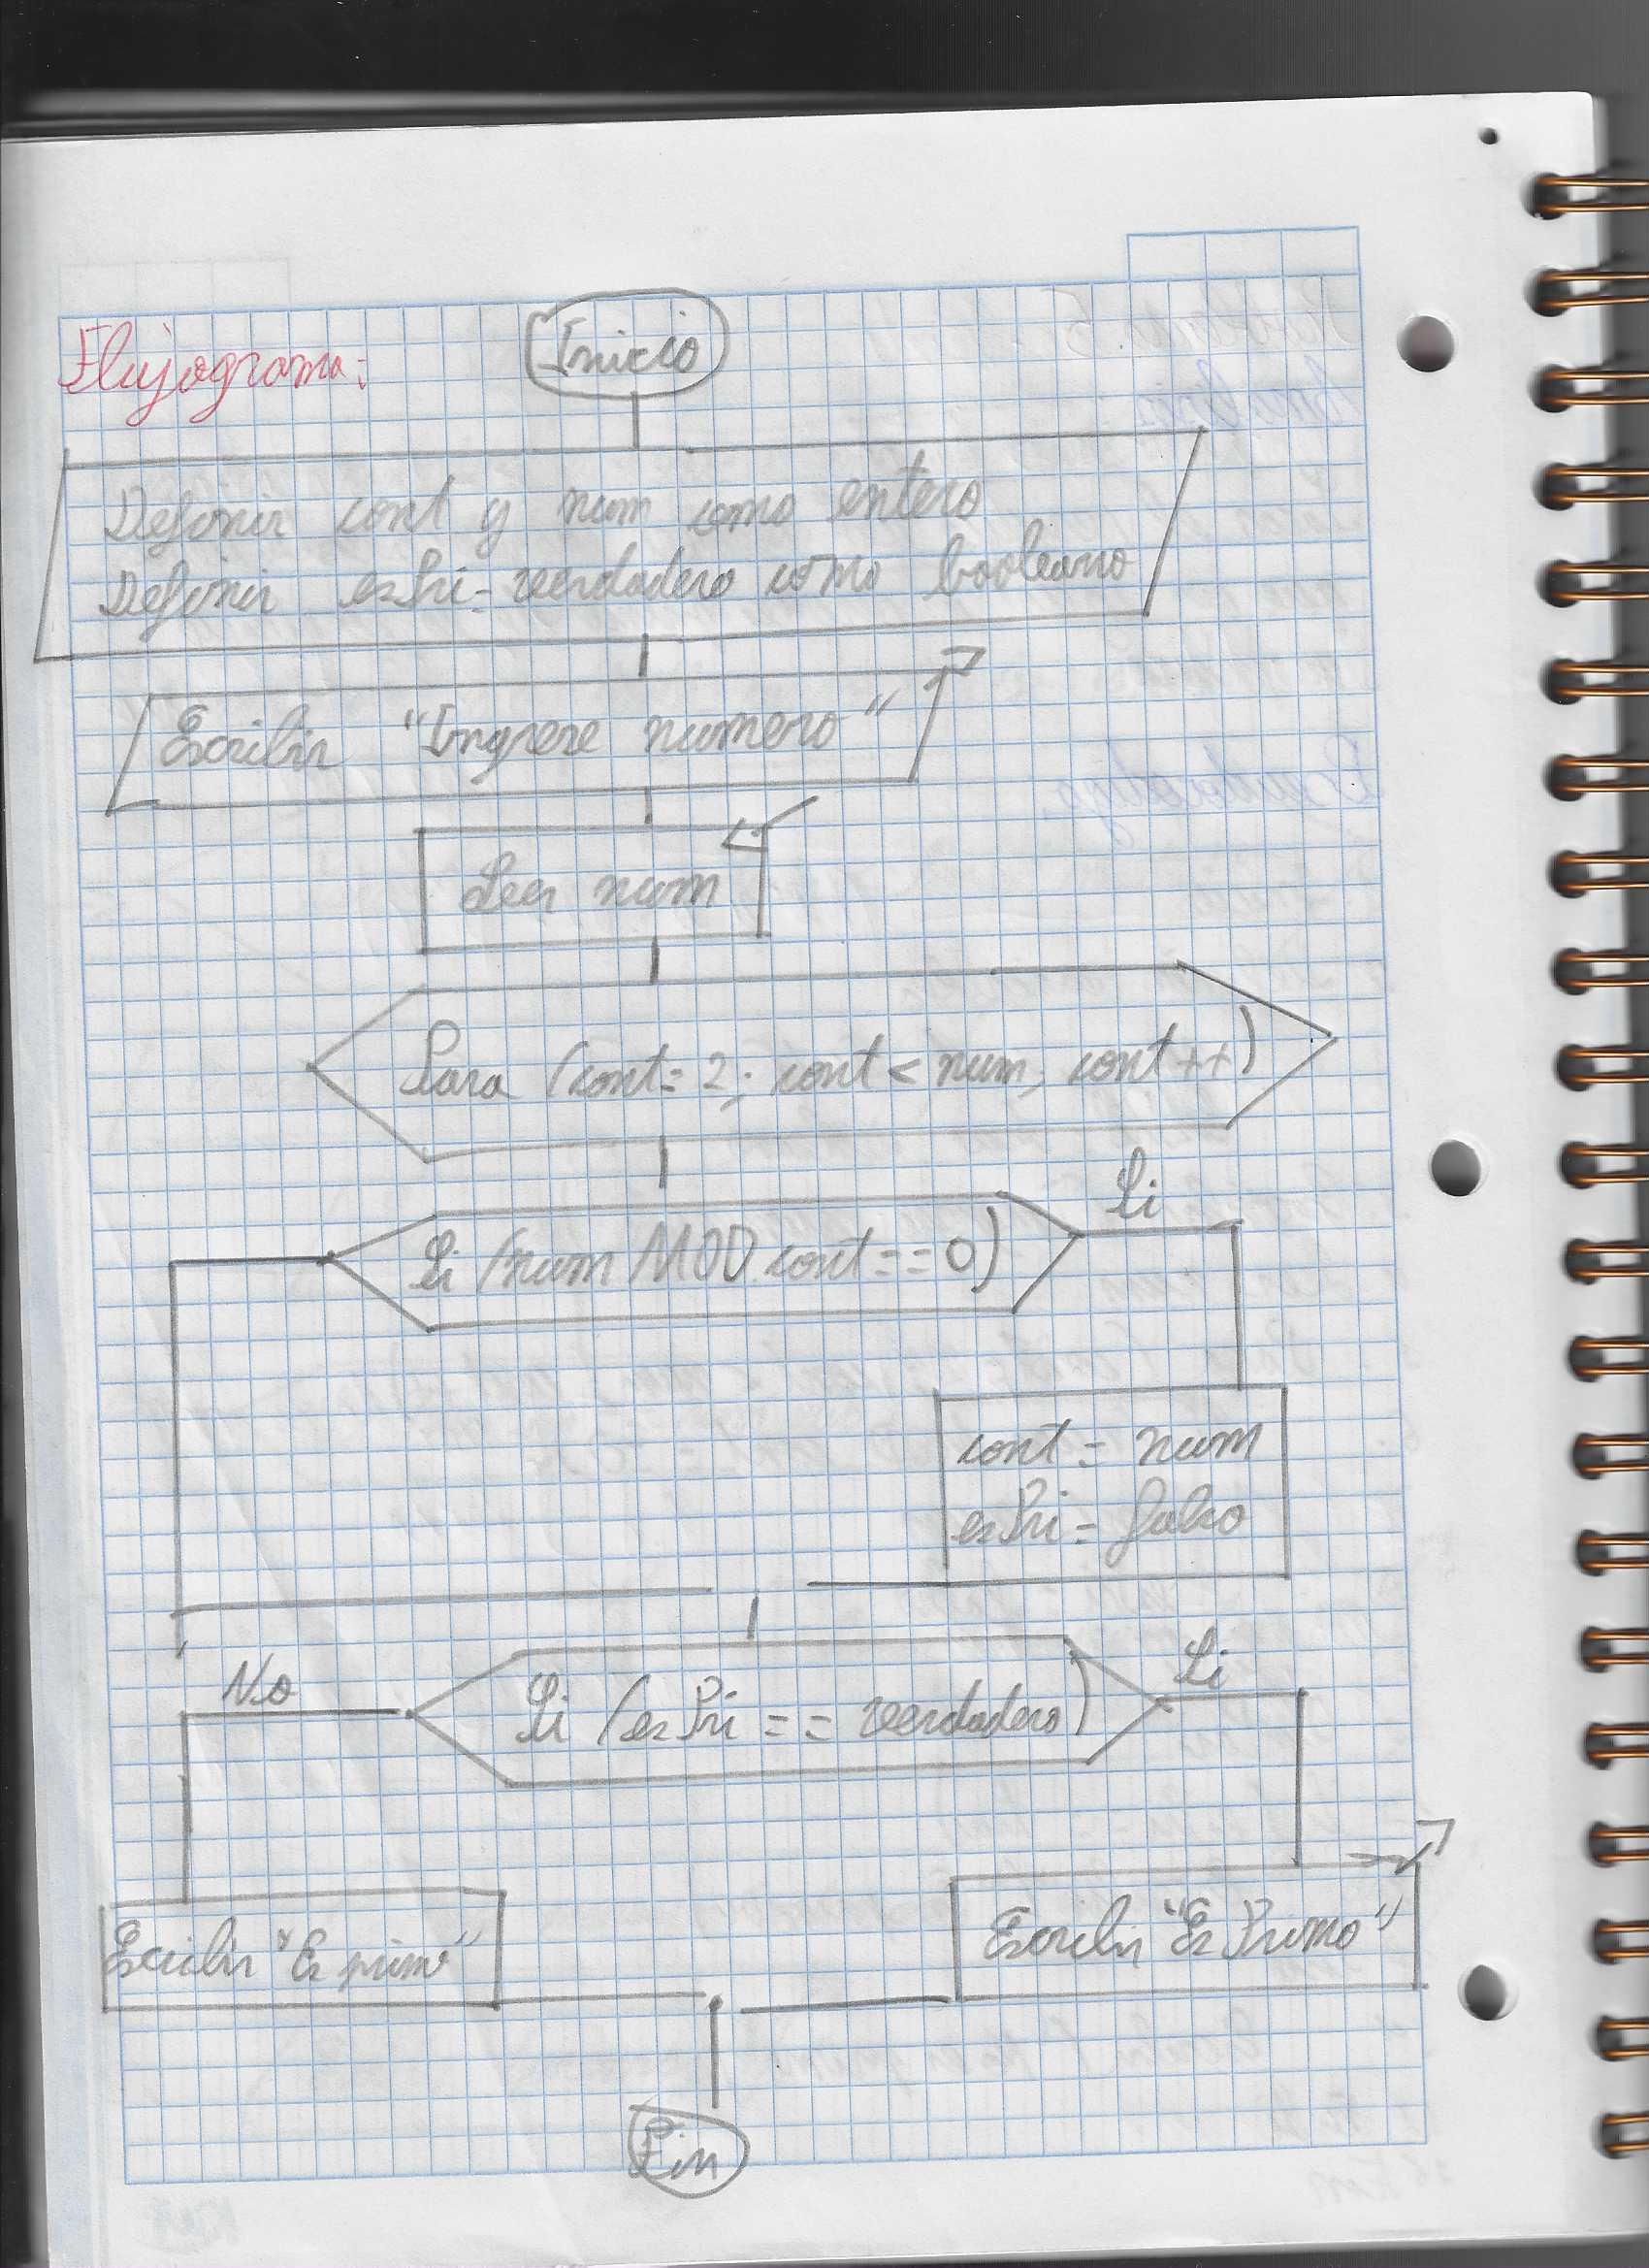 Flujograma:
Inicio
Definir cont y num como entero
Definir esPri = verdadero como booleano
Escribir "Ingrese numero"
Leer num
Para (cont = 2; cont < num; cont++)
Si
Si (num MOD cont == 0)
cont = num
esPri = falso
No
Si (esPri == verdadero)
Si
Escribir "Es primo"
Escribir "Es Primo"
Fin